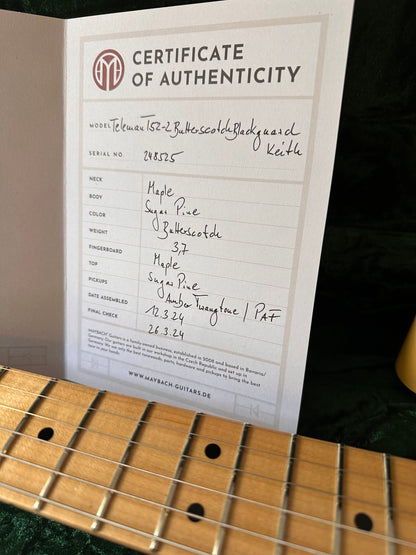 CERTIFICATE
OF AUTHENTICITY
MODEL Teleman T52-2 Butterscotch Blackguard
Keith
SERIAL NO. 248525
NECK Maple
BODY Sugar Pine
COLOR Butterscotch
WEIGHT 3,7
FINGERBOARD Maple
TOP Sugar Pine
PICKUPS Amber Twangtone / PAF
DATE ASSEMBLED 12.3.24
FINAL CHECK 26.3.24
MAYBACH® Guitars is a family-owned business, established in 2008 and based in Bavaria/
Germany. Our guitars are built in our workshop in the Czech Republic and set up in
Germany. We use only the best tonewoods, parts, hardware and pickups to bring the best
tone in your hands.
WWW.MAYBACH-GUITARS.DE